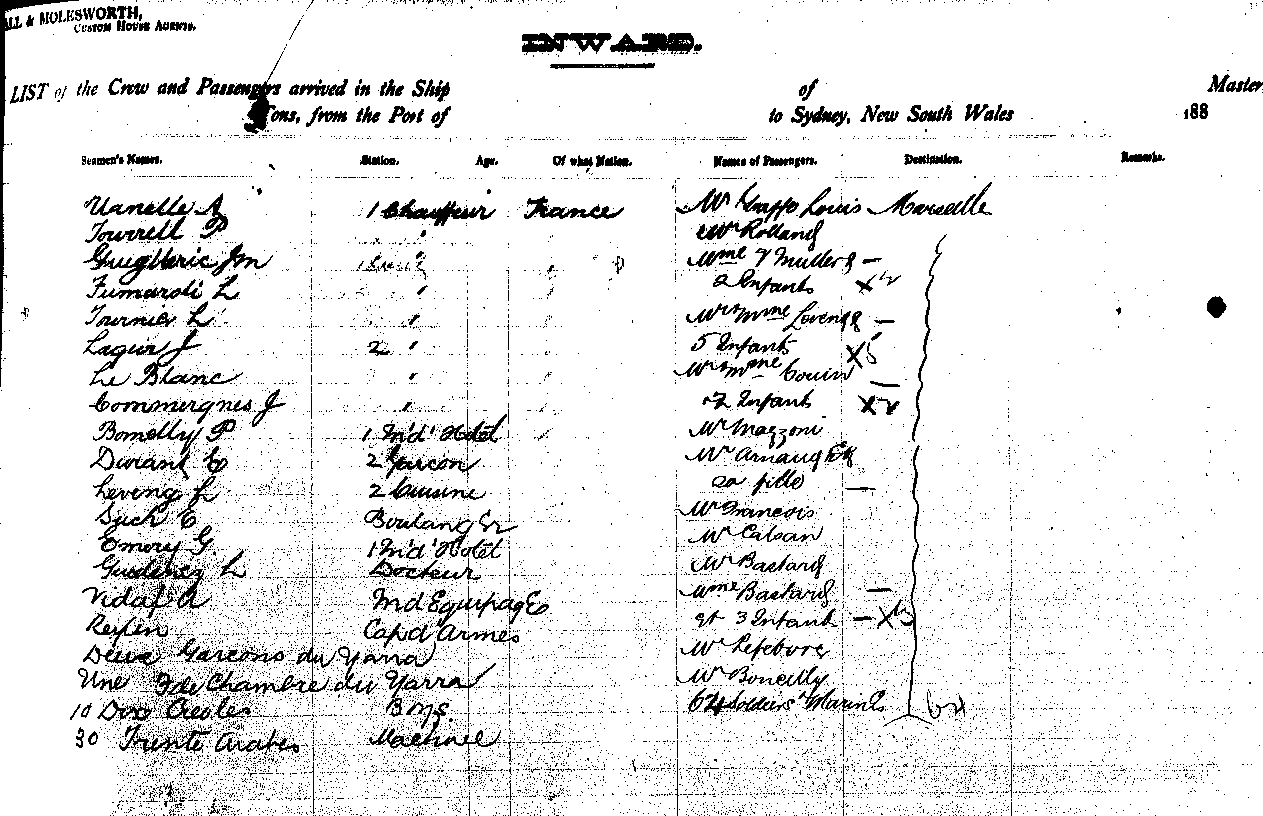 ALL & MOLESWORTH,
CUSTOM HOUSE AGENTS.
INWARD.
LIST of the Crew and Passengers arrived in the Ship of Master
Tons, from the Port of to Sydney, New South Wales 188
Seamen's Names. Station. Age. Of what Nation. Names of Passengers. Destination. Remarks.
A 1 Chauffeur France Mr Louis Marseille
P " Mr Rolland
Jm 1 " " Mme Muller —
Fumaroli L " " 2 Enfants X2
Tournier L " " Mr & Mme —
Lagur J 2 " " 5 Enfants X5
Le Blanc " " Mr & Mme Couin —
Commergnes J " " 2 Enfants X2
Bomelly P 1 m'd' Hotel " Mr Mazzoni
Durant E 2 Garcon Mr
L 2 Cuisine sa fille —
Such E Boulanger Mr Francois
Emery G 1 m'd' Hotel Mr
L Docteur Mr Bastard
Vidal A md Equipage Mme Bastard —
Cap d'Armes et 3 Enfant — X3
Deux Garcons du Yarra Mr Lefebvre
Une F de Chambre du Yarra Mr
10 Dix Creoles Boys. 64 Soldiers Marine 64
30 Trente Arabes Machine